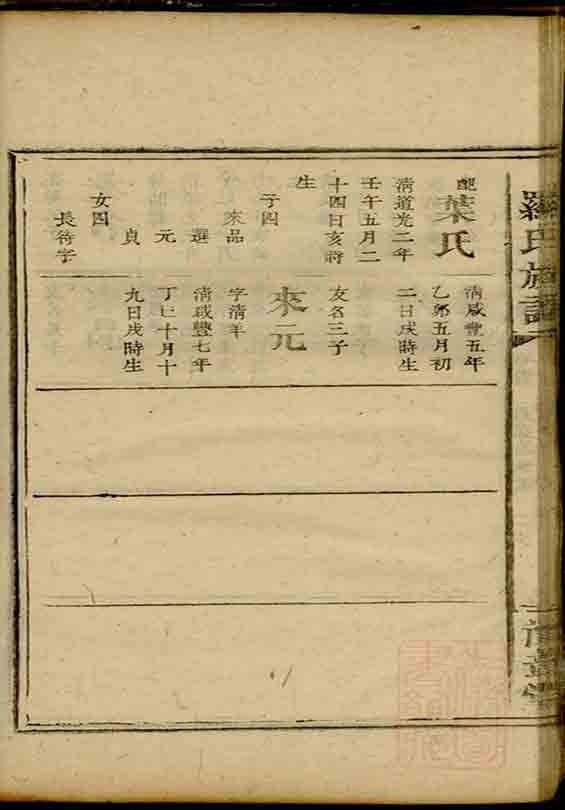 羅氏族譜
配葉氏
清道光二年
壬午五月二
十四日亥時
生
子四
來品
選
元
貞
女四
長待字
清咸豐五年
乙卯五月初
二日戌時生
友名三子
來元
字清羊
清咸豐七年
丁巳十月十
九日戌時生